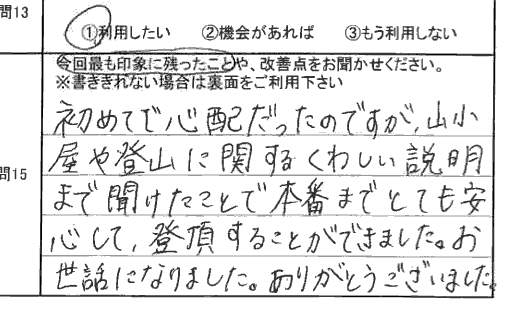 問13
①利用したい ②機会があれば ③もう利用しない
今回最も印象に残ったことや、改善点をお聞かせください。
※書ききれない場合は裏面をご利用下さい
問15
初めてで心配だったのですが、山小
屋や登山に関するくわしい説明
まで聞けたことで本番までとても安
心して、登頂することができました。お
世話になりました。ありがとうございました。